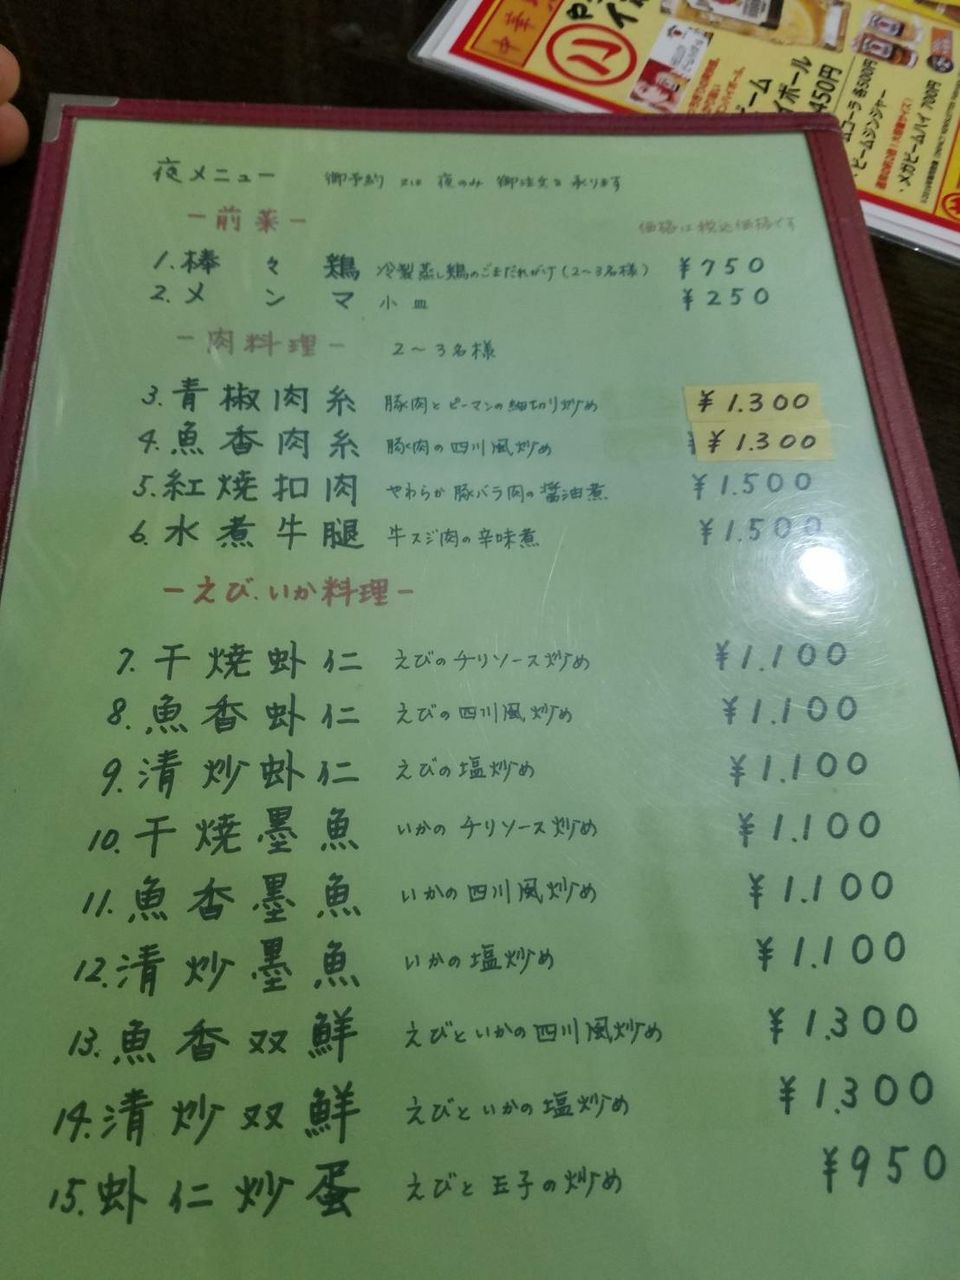 夜メニュー 御予約 又は 夜のみ 御注文を承ります
－前菜－
価格は税込価格です
1. 棒々鶏 冷製蒸し鶏のごまだれがけ(2～3名様) ¥750
2. メンマ 小皿 ¥250
－肉料理－ 2～3名様
3. 青椒肉糸 豚肉とピーマンの細切り炒め ¥1.300
4. 魚香肉糸 豚肉の四川風炒め ¥1.300
5. 紅焼扣肉 やわらか豚バラ肉の醤油煮 ¥1.500
6. 水煮牛腿 牛スジ肉の辛味煮 ¥1.500
－えび.いか料理－
7. 干焼蝦仁 えびのチリソース炒め ¥1.100
8. 魚香蝦仁 えびの四川風炒め ¥1.100
9. 清炒蝦仁 えびの塩炒め ¥1.100
10. 干焼墨魚 いかのチリソース炒め ¥1.100
11. 魚香墨魚 いかの四川風炒め ¥1.100
12. 清炒墨魚 いかの塩炒め ¥1.100
13. 魚香双鮮 えびといかの四川風炒め ¥1.300
14. 清炒双鮮 えびといかの塩炒め ¥1.300
15. 蝦仁炒蛋 えびと玉子の炒め ¥950
中華
ハ
イボール
450円
ビームジンジャー
・メガビームハイ 700円